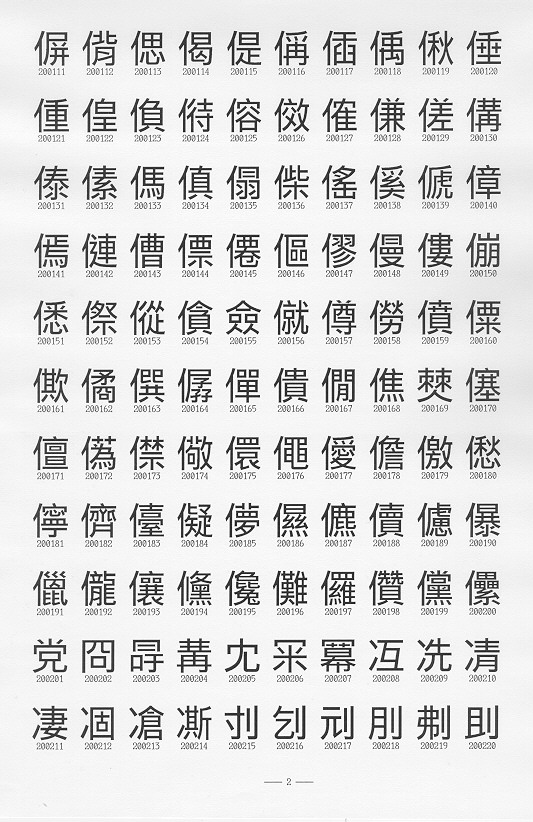 偋偝偲偈偍偁偛偊偢倕
偅偟偩偫傛傚傕傔傞傋
傣傃傌傎傝偨傜傒傂傽
傿僆傮僄僊傴僇僈僂傰
僁傺傱僋僉僦僔僗僨僄
僛僪僎僝僤僓僩僬僰僿
儃儰儍儆儇僶僾儋儌僽
儜儕儓儗儚儑儦儥儢儤
儠儱儴儵儳儺儸儹儻儽
党冏冔冓冘冞冪冱冼凊
凄凅凔凘刌刉刓刖刜刞
200111 200112 200113 200114 200115 200116 200117 200118 200119 200120
200121 200122 200123 200124 200125 200126 200127 200128 200129 200130
200131 200132 200133 200134 200135 200136 200137 200138 200139 200140
200141 200142 200143 200144 200145 200146 200147 200148 200149 200150
200151 200152 200153 200154 200155 200156 200157 200158 200159 200160
200161 200162 200163 200164 200165 200166 200167 200168 200169 200170
200171 200172 200173 200174 200175 200176 200177 200178 200179 200180
200181 200182 200183 200184 200185 200186 200187 200188 200189 200190
200191 200192 200193 200194 200195 200196 200197 200198 200199 200200
200201 200202 200203 200204 200205 200206 200207 200208 200209 200210
200211 200212 200213 200214 200215 200216 200217 200218 200219 200220
— 2 —